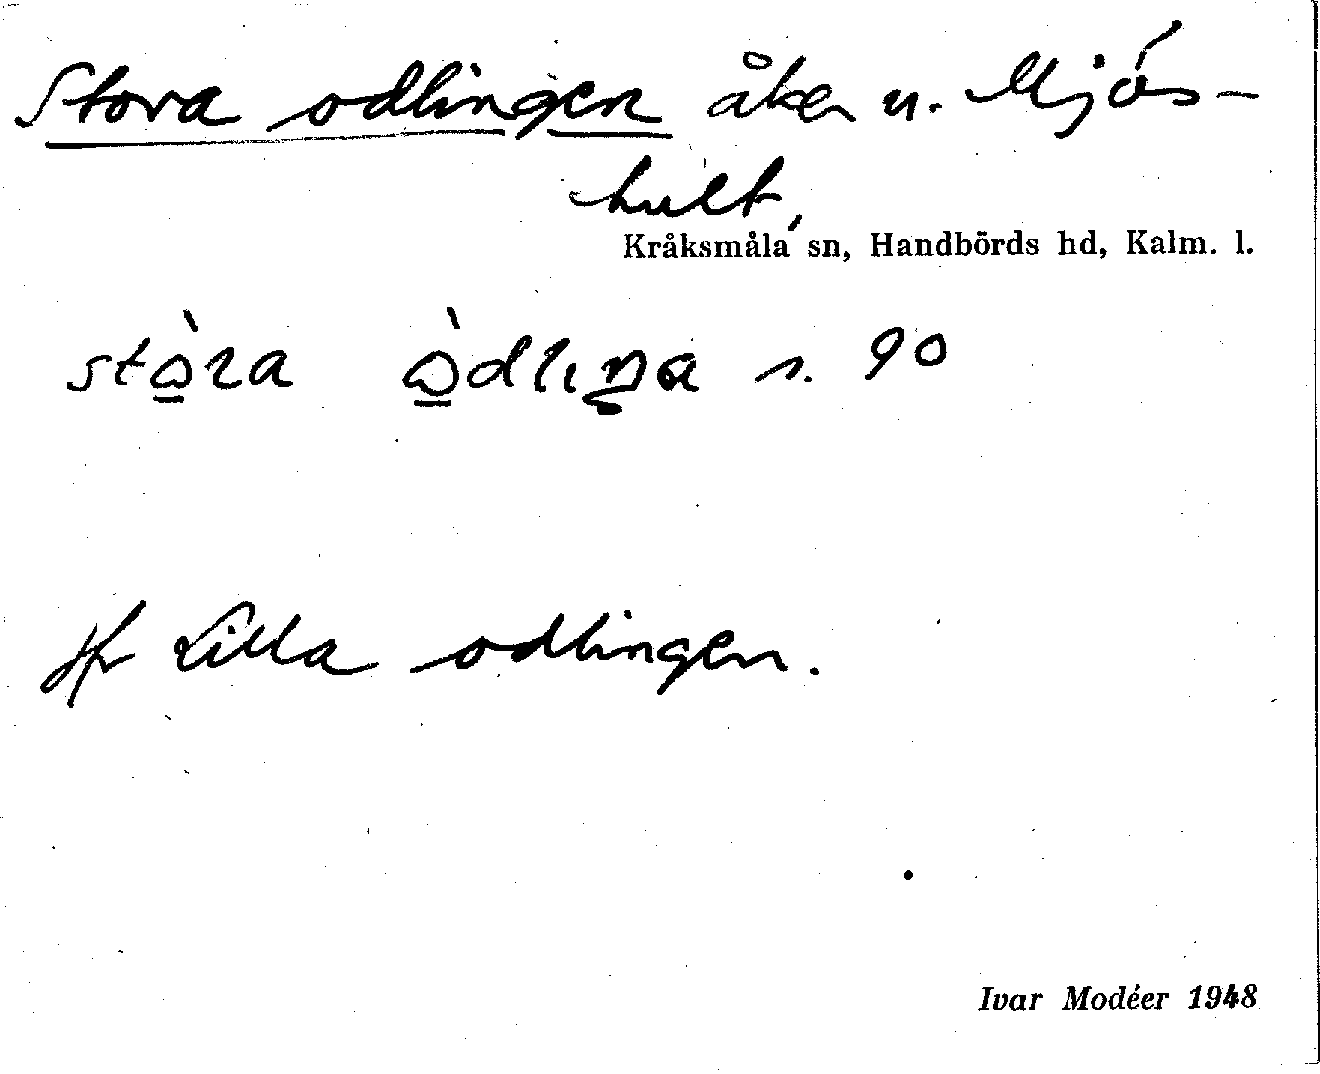 Stora odlingen åker u. Mjös-
hult,
Kråksmåla sn, Handbörds hd, Kalm. l.
stò̱ra ò̱dlıŋa s. 90
Jfr Lilla odlingen.
Ivar Modéer 1948